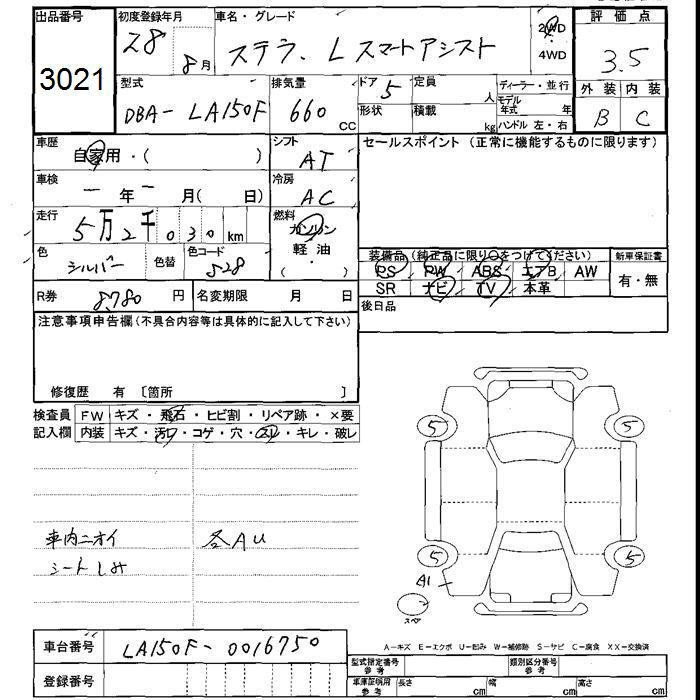 出品番号
3021
初度登録年月
28 8月
車名・グレード
ステラ. L スマートアシスト
2WD
4WD
評価点
3.5
外装 内装
B C
型式
DBA- LA150F
排気量
660 cc
ドア 5
形状
定員 人
積載 kg
ディーラー・並行
モデル年式 年
ハンドル 左・右
車歴
自家用・( )
シフト
AT
セールスポイント (正常に機能するものに限ります)
車検
一 年 一 月( 日)
冷房
AC
走行
5万2千030km
燃料
ガソリン
軽油
( )
色
シルバー
色替
色コード
S28
装備品(純正品に限り○をつけてください)
PS PW ABS エアB AW
SR ナビ TV 本革
新車保証書
有・無
R券 8,780 円
名変期限 月 日
後日品
注意事項申告欄(不具合内容等は具体的に記入して下さい)
修復歴 有 〔箇所 〕
検査員記入欄
FW キズ・飛石・ヒビ割・リペア跡・×要
内装 キズ・汚れ・コゲ・穴・スレ・キレ・破レ
5 5
車内ニオイ
シートしみ
各AU
5 5
A1
スペア
車台番号 LA150F-0016750
登録番号
A-キズ E-エクボ U-凹み W-補修跡 S-サビ C-腐食 XX-交換済
型式指定番号 参考
類別区分番号 参考
車庫証明用 参考 長さ cm 幅 cm 高さ cm